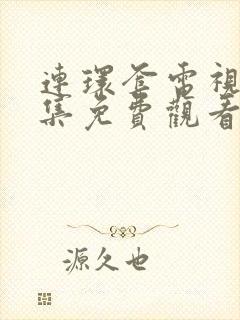 連環套電視
集免費觀看
源久也